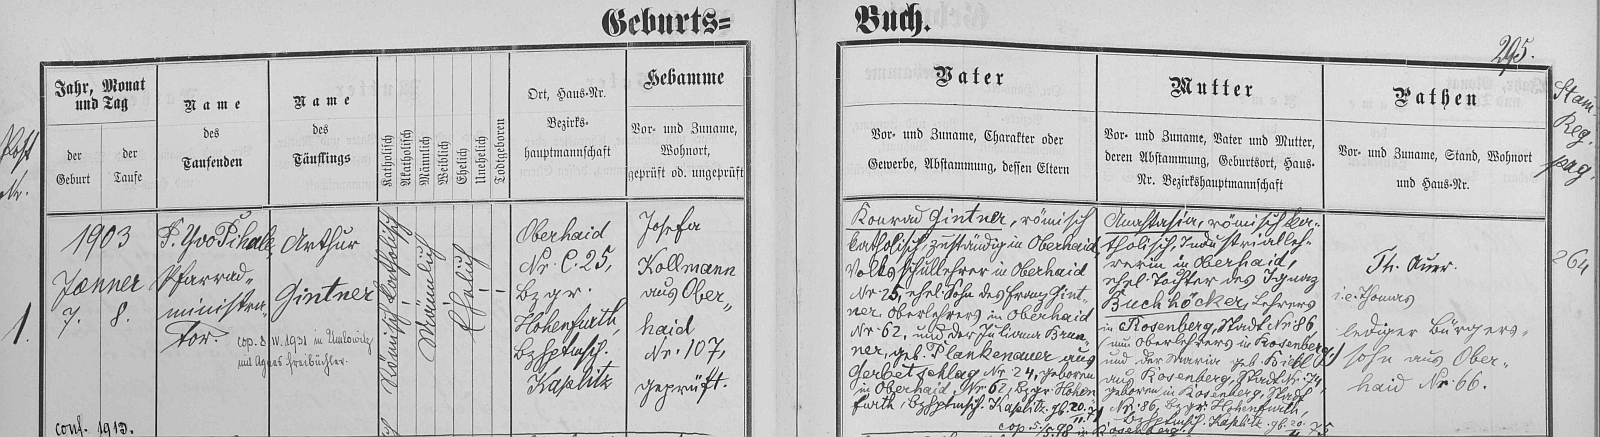 Geburts= Buch.
295.
Post
Nr.
Jahr, Monat
und Tag
der
Geburt
der
Taufe
Name
des
Taufenden
Name
des
Täuflings
Katholisch
Akatholisch
Männlich
Weiblich
Ehelich
Unehelich
Todtgeboren
Ort, Haus-Nr.
Bezirks-
hauptmannschaft
Hebamme
Vor- und Zuname,
Wohnort,
geprüft od. ungeprüft
Vater
Vor- und Zuname, Charakter oder
Gewerbe, Abstammung, dessen Eltern
Mutter
Vor- und Zuname, Vater und Mutter,
deren Abstammung, Geburtsort, Haus-
Nr. Bezirkshauptmannschaft
Pathen
Vor- und Zuname, Stand, Wohnort
und Haus-Nr.
Stam
Reg.
pag.
1.
1903
Jänner
7. 8.
P. Yvo Pihale,
Pfarrad-
ministra-
tor.
Arthur
Gintner
cop. 8 IV. 1931 in Umlowitz
mit Agnes Freibüchler.
Römisch katholisch
Männlich
Ehelich
Oberhaid
Nr. C. 25,
Bzgr.
Hohenfurth,
Bzhptmsch.
Kaplitz
Josefa
Kollmann
aus Ober-
haid
Nr. 107,
geprüft.
Konrad Gintner, römisch
katholisch, zuständig in Oberhaid,
Volksschullehrer in Oberhaid
Nr 25, ehel. Sohn des Franz Gint-
ner, Oberlehrers in Oberhaid
Nr. 62, und der Juliana Brun-
ner, geb. Plankenauer aus
Gerbetschlag Nr. 24, geboren
in Oberhaid, Nr. 62, Bzgr. Hohen-
furth, Bzhptmsch. Kaplitz. gb. 20.
cop. 5/5. 98 in Rosenberg.
Anastasia, römisch ka-
tholisch, Industrialleh-
rerin in Oberhaid,
ehel. Tochter des Ignaz
Buchhöcker, Lehrers
in Rosenberg, Stadt Nr. 86,
(nun Oberlehrers in Rosenberg.)
und der Maria geb. Kiebl
aus Rosenberg, Stadt Nr. 74,
geboren in Rosenberg, Stadt
Nr. 86, Bzgr. Hohenfurth,
Bzhptmsch. Kaplitz. gb. 20.
Th. Auer.
i.e. Thomas
lediger Bürgers-
sohn aus Ober-
haid Nr. 66.
264
conf. 1913.